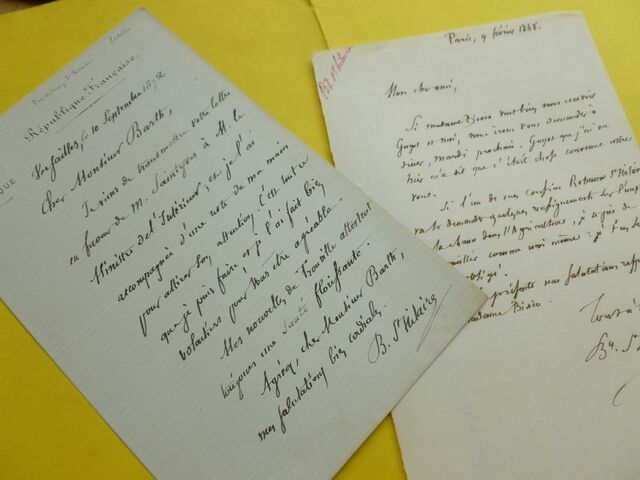 République Française
Versailles, le 10 Septembre 1872
Cher Monsieur Barth,
Je viens de transmettre votre lettre
en faveur de M. à M. le
Ministre de l'Intérieur; et je l'ai
accompagnée d'une note de ma main
pour attirer son attention. C'est tout ce
que je puis faire, et je l'ai fait bien
volontiers pour vous être agréable.
Mes nouvelles de Trouville attestent
toujours une Santé florissante.
Agréez, cher Monsieur Barth,
mes salutations bien cordiales.
B. St Hilaire
QUE
Paris, 9 février 1868.
Mon cher ami,
Si madame Bixio veut bien nous recevoir
Guyot et moi, nous irons vous demander à
dîner, mardi prochain. Guyot que j'ai vu
hier m'a dit que c'était chose convenue entre
vous.
Si l'un de mes confrères St Hilaire
va te demander quelques renseignements sur
la chaux dans l'Agriculture, je te de
comme moi même. je t'en
obligé.
présente mes salutations
madame Bixio.
Tout à
By. S